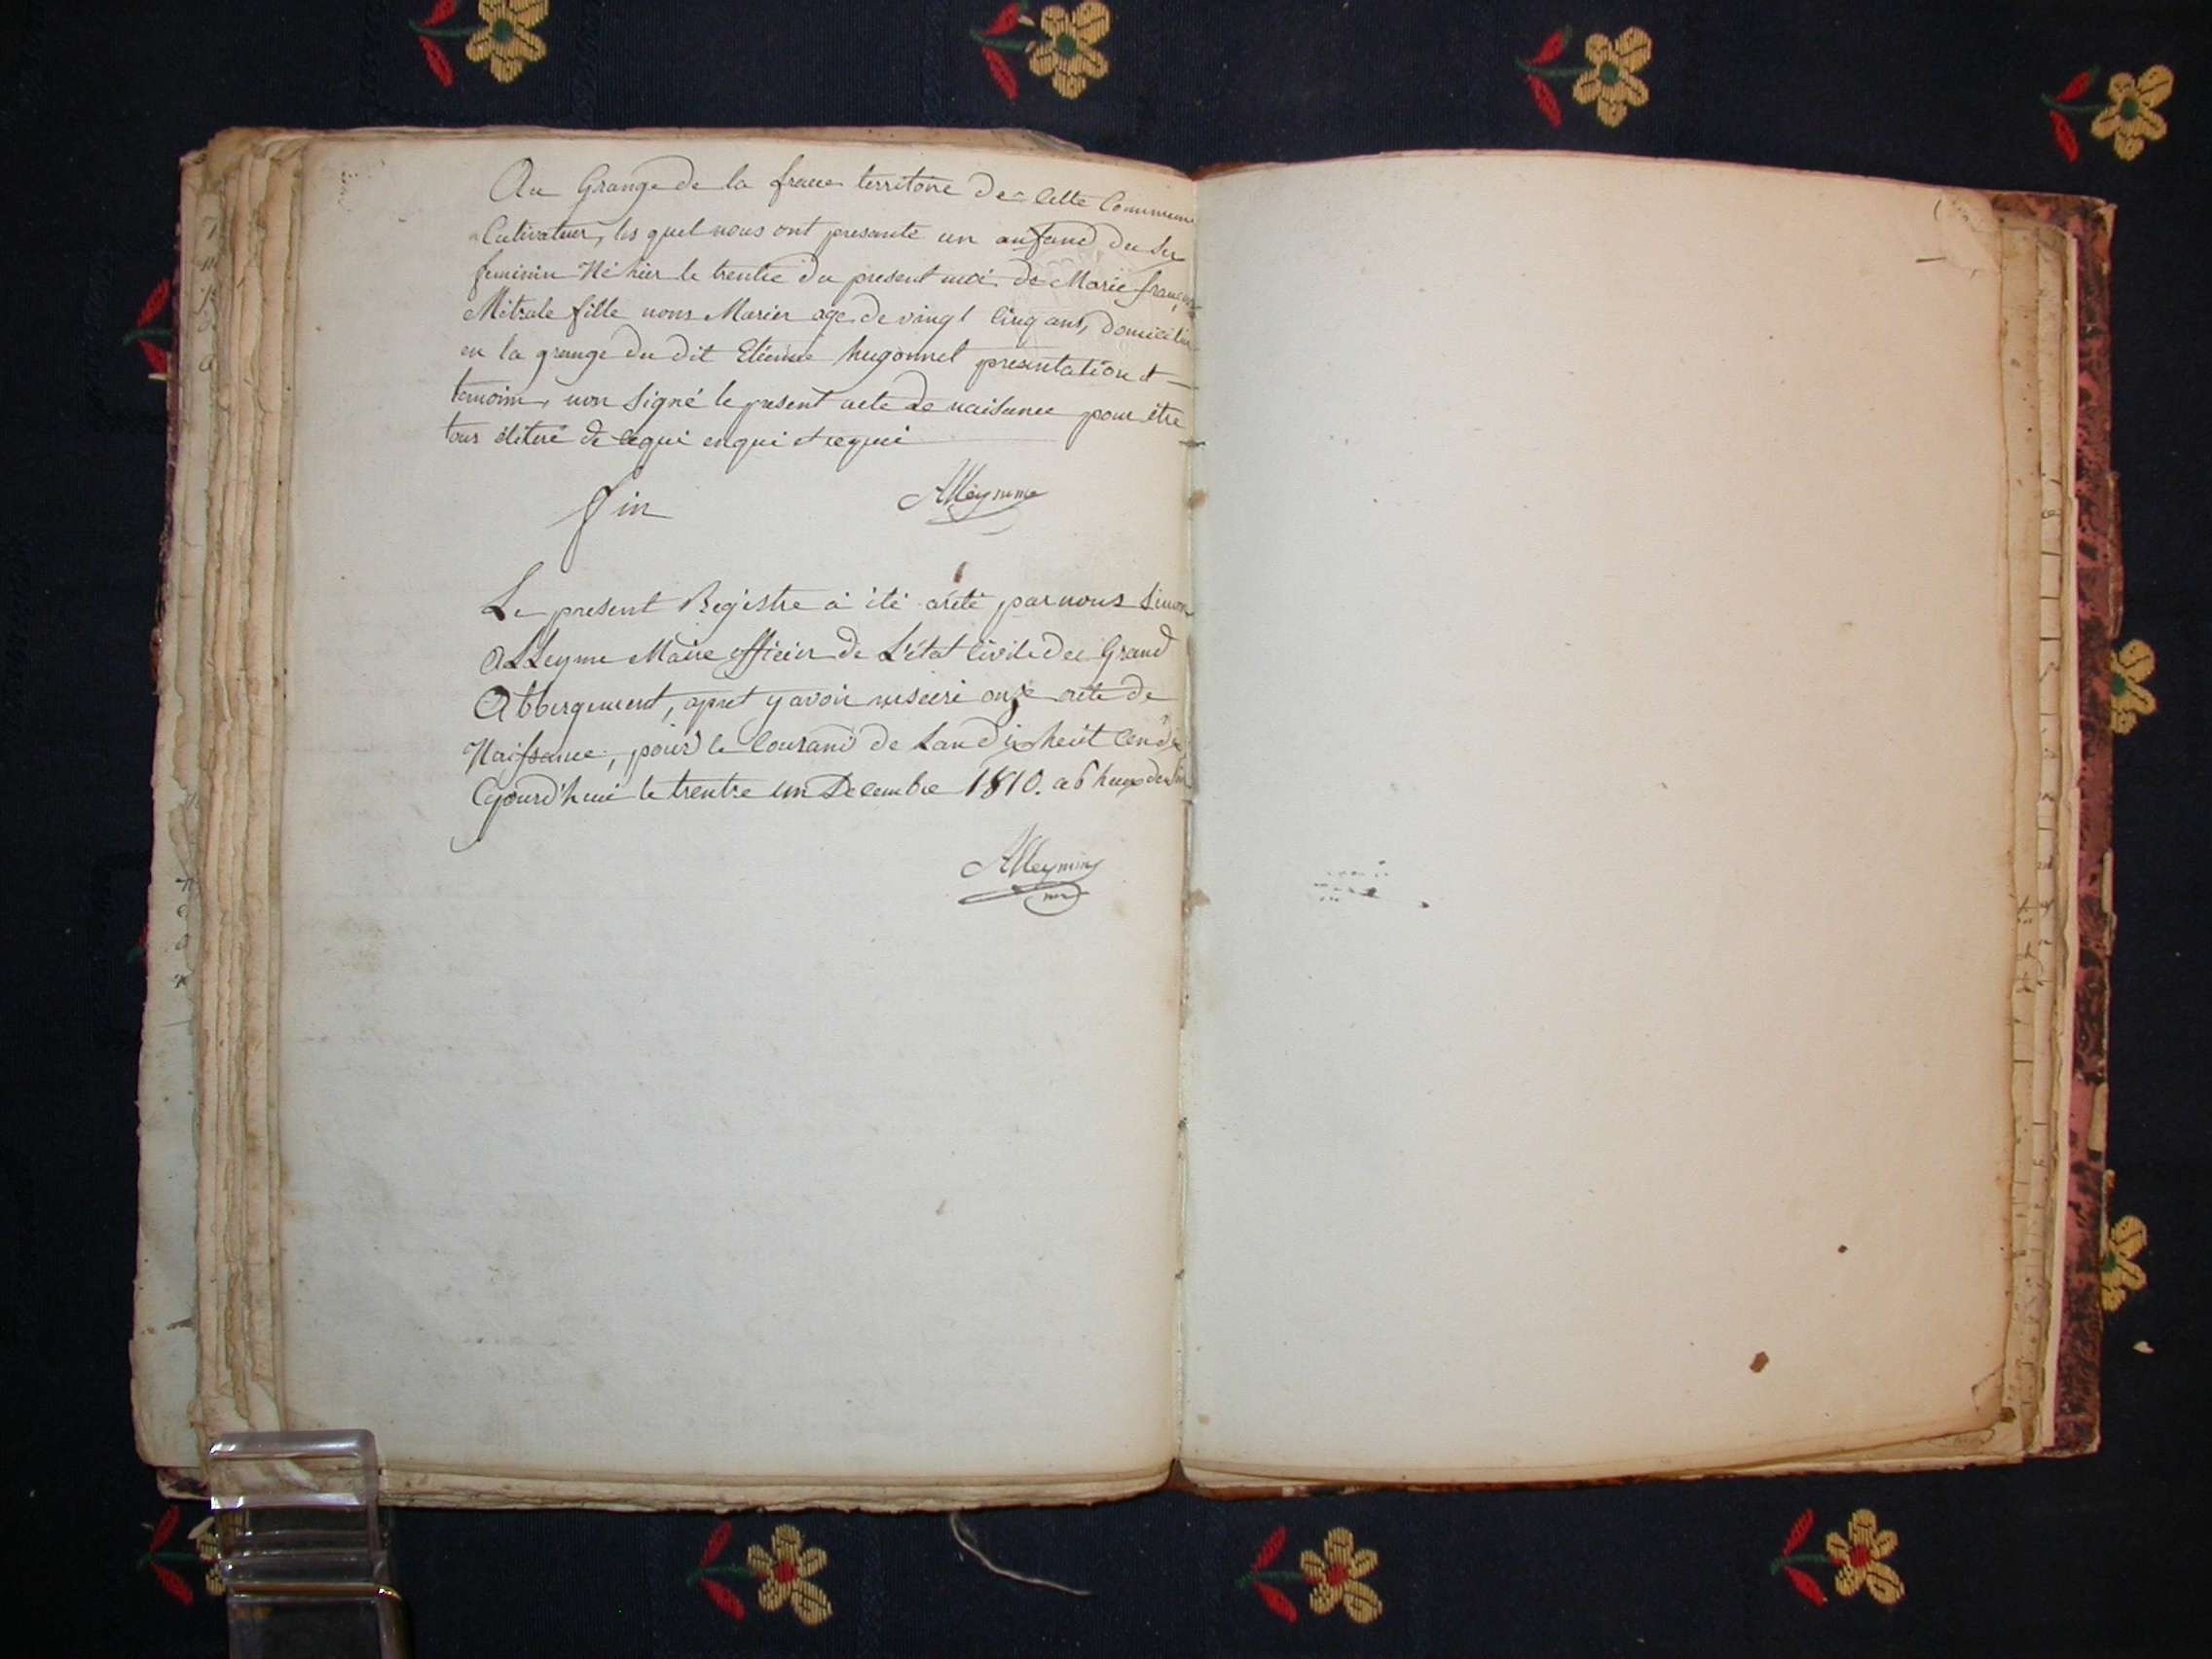 Au Grange de la france territoire de cette Commune
Cultivateur, les quel nous ont presanté un anfand du sex
feminin Né hier le trentre du present moi de Marie françoise
Mitrale fille nons Marier age de vingt Cinq ans, domicilié
en la grange du dit Etienne hugonnet presentation et
temoins, non Signé le present acte de naisance pour être
tous élitué de
fin Alleymme
Le present Registre à été arèté par nous Simon
Alleyme Maire officier de L'état Civile du Grand
Abbergement, apret y avoir inséeré onze acte de
Naissance, pour le Courand de Lan dix heüit Cen dix
Cejourd'hui le trentre un Decembre 1810. a 6 heure du soir
Alleymme